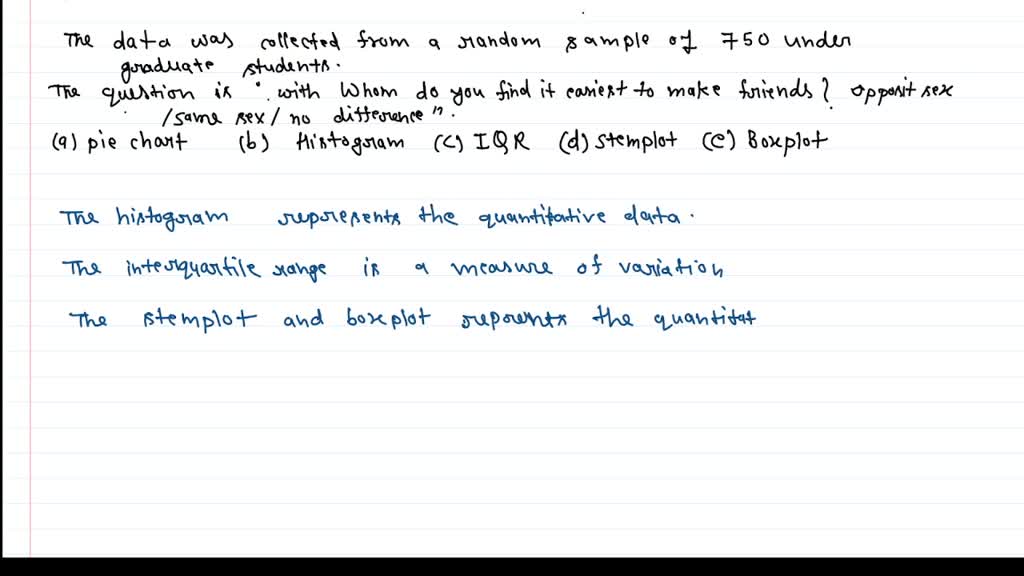 The data was collected from a random sample of 750 under
graduate students.
The question is " with Whom do you find it easiest to make friends? opposit sex
/same sex/ no difference".
(a) pie chart (b) Histogram (c) IQR (d) stemplot (e) Boxplot
The histogram represents the quantitative data.
The interquartile range is a measure of variation
The stemplot and boxplot reprents the quantitat